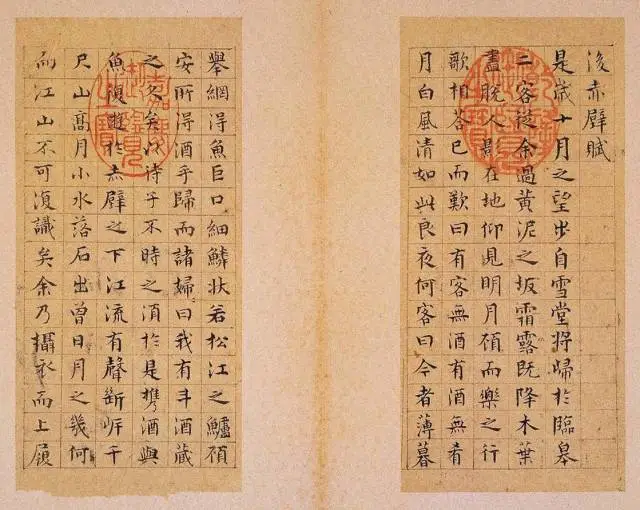 後赤壁賦
是歲十月之望步自雪堂將歸於臨皋
二客從余過黃泥之坂霜露既降木葉
盡脫人影在地仰見明月顧而樂之行
歌相答已而歎曰有客無酒有酒無肴
月白風清如此良夜何客曰今者薄暮
舉網得魚巨口細鱗狀若松江之鱸顧
安所得酒乎歸而諸婦曰我有斗酒藏
之久矣以待子不時之湏於是攜酒與
魚復遊於赤壁之下江流有聲斷岸千
尺山髙月小水落石出曾日月之幾何
而江山不可復識矣余乃攝衣而上嶺